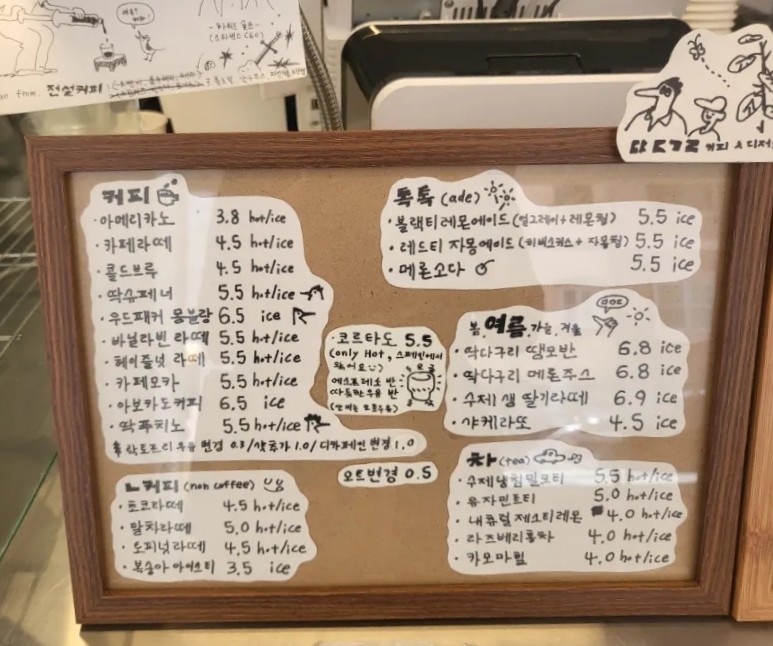 전설커피
커피
· 아메리카노 3.8 hot/ice
· 카페라떼 4.5 hot/ice
· 콜드브루 4.5 hot/ice
· 딱슈페너 5.5 hot/ice
· 우드패커 몽블랑 6.5 ice
· 바닐라빈 라떼 5.5 hot/ice
· 헤이즐넛 라떼 5.5 hot/ice
· 카페모카 5.5 hot/ice
· 아보카도커피 6.5 ice
· 딱푸치노 5.5 hot/ice
락토프리 우유 변경 0.3/샷추가 1.0/디카페인 변경 1.0
ㄴ커피 (non coffee)
· 초코라떼 4.5 hot/ice
· 말차라떼 5.0 hot/ice
· 토피넛라떼 4.5 hot/ice
· 복숭아 아이스티 3.5 ice
· 코르타도 5.5
(only Hot, 스페인에서
에스프레소 반
따뜻한 우유 반
오트변경 0.5
톡톡 (ade)
· 블랙티레몬에이드 (얼그레이+레몬청) 5.5 ice
· 레드티 자몽에이드 (히비스커스+자몽청) 5.5 ice
· 메론소다 5.5 ice
봄, 여름, 가을, 겨울
· 딱다구리 땡모반 6.8 ice
· 딱다구리 메론주스 6.8 ice
· 수제 생 딸기라떼 6.9 ice
· 샤케라또 4.5 ice
차 (tea)
· 수제냉침밀크티 5.5 hot/ice
· 유자민트티 5.0 hot/ice
· 내츄럴 제스티레몬 4.0 hot/ice
· 라즈베리홍차 4.0 hot/ice
· 카모마일 4.0 hot/ice
커피 & 디저